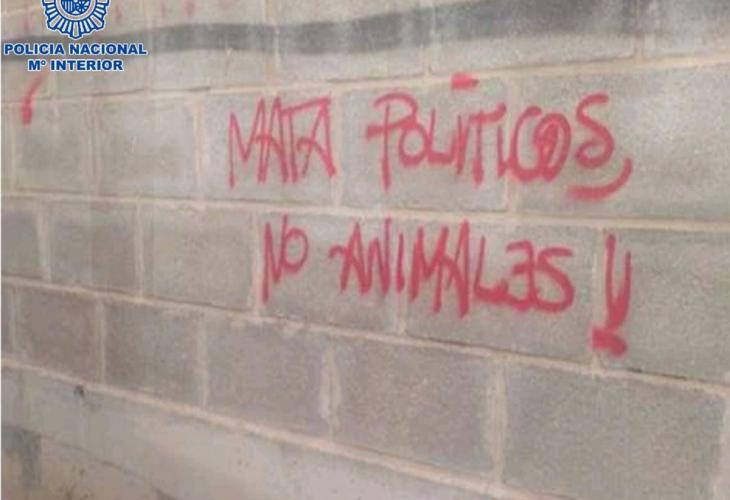 POLICIA NACIONAL
Mº INTERIOR
MATA POLÍTICOS,
NO ANIMALES!!